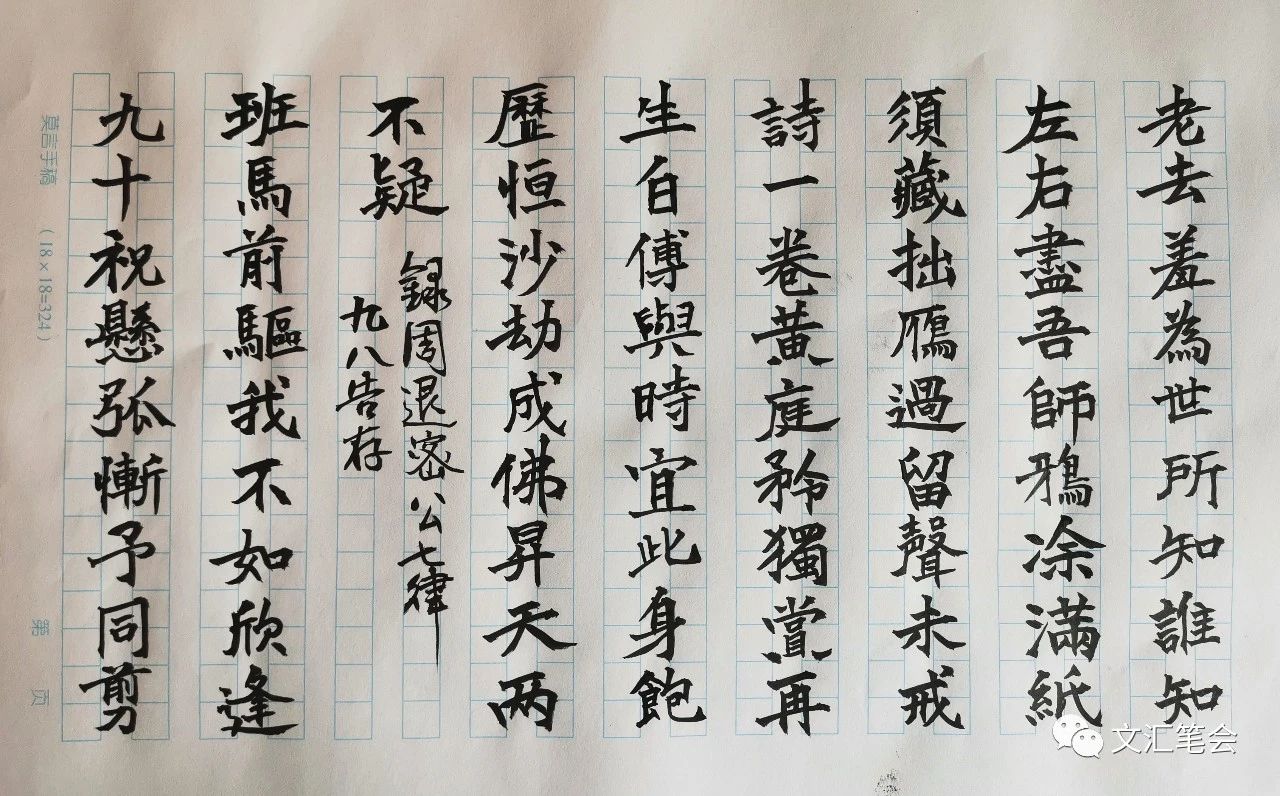 老去羞為世所知誰知
左右盡吾師鴉凃滿紙
須藏拙鴈過留聲未戒
詩一卷黃庭矜獨賞再
生白傅與時宜此身飽
歷恒沙劫成佛昇天两
不疑
録周退密公七律
九八告存
班馬前驅我不如欣逢
九十祝懸弧慚予同剪
莫言手稿 (18×18=324)
第 页
文汇笔会